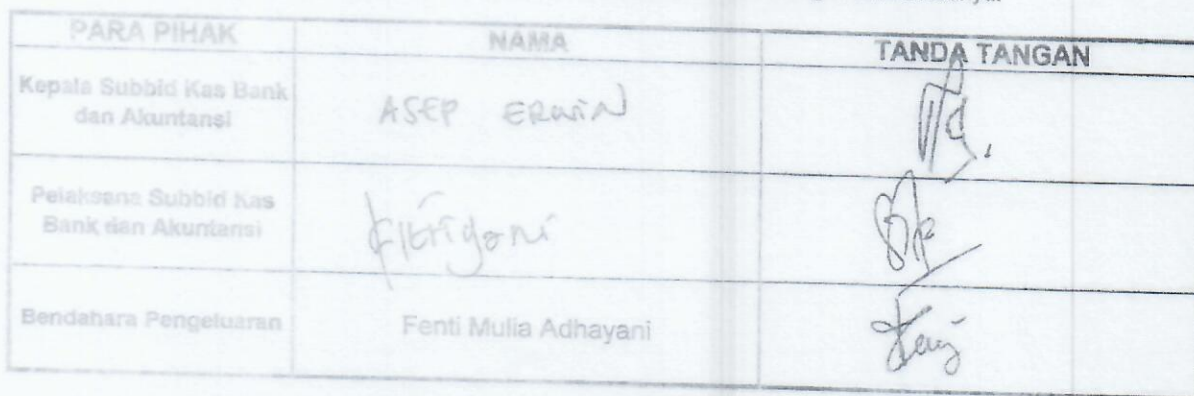 PARA PIHAK NAMA TANDA TANGAN
Kepala Subbid Kas Bank
dan Akuntansi
ASEP ERWIN
Pelaksana Subbid Kas
Bank dan Akuntansi
Fitriyani
Bendahara Pengeluaran Fenti Mulia Adhayani